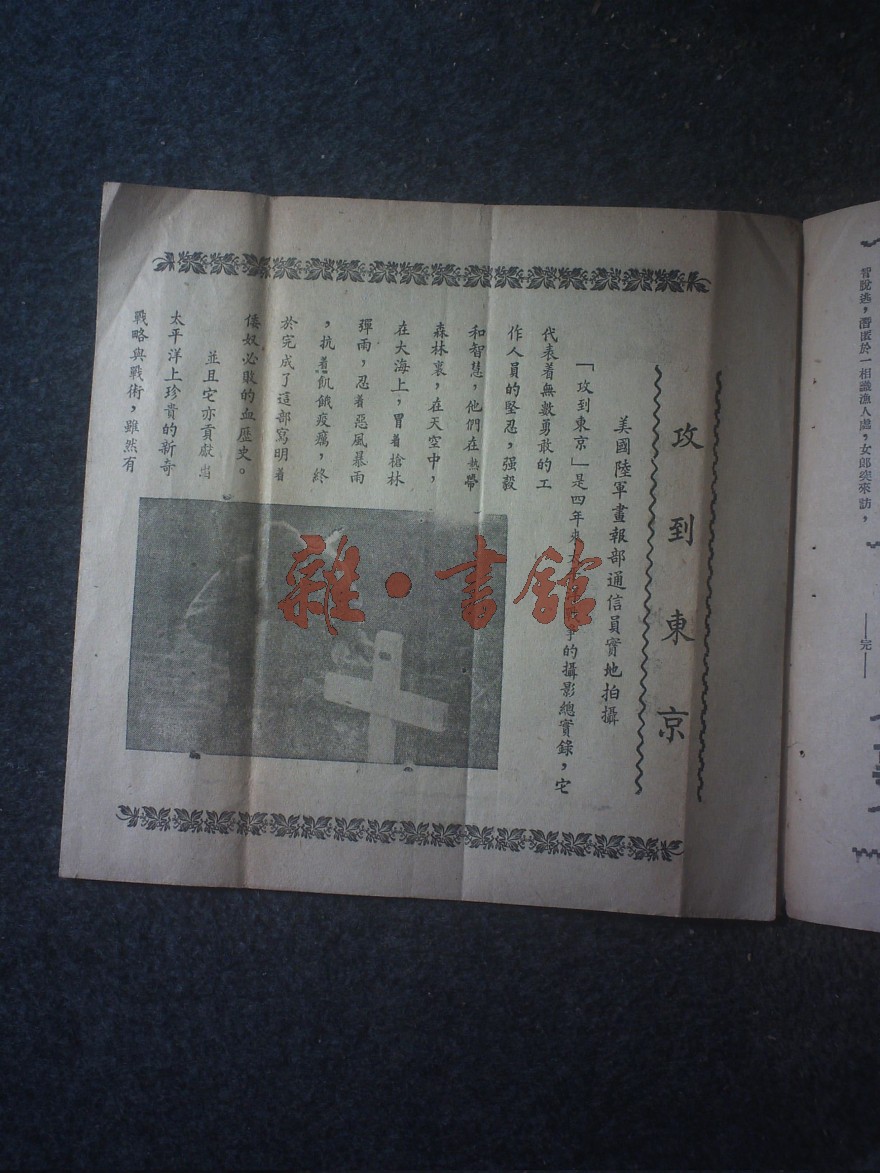 攻到東京
美國陸軍畫報部通信員實地拍攝
「攻到東京」是四年來 爭的攝影總實錄，它
代表着無數勇敢的工
作人員的堅忍，强毅
和智慧，他們在熱帶
森林裏，在天空中，
在大海上，冒着槍林
彈雨，忍着惡風暴雨
，抗着飢餓疫癘，終
於完成了這部寫明着
倭奴必敗的血歷史。
並且它亦貢獻出
太平洋上珍貴的新奇
戰略與戰術，雖然有
雜·書館
智脫逃，潛匿於一相識漁人處，女郎突來訪，
——完——